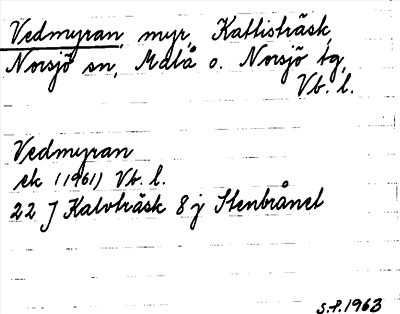 Vedmyran, myr, Kattisträsk,
Norsjö sn, Malå o. Norsjö tg,
Vb. l.
Vedmyran
ek (1961) Vb. l.
22 J Kalvträsk 8 j Stenbrånet
S.P. 1963